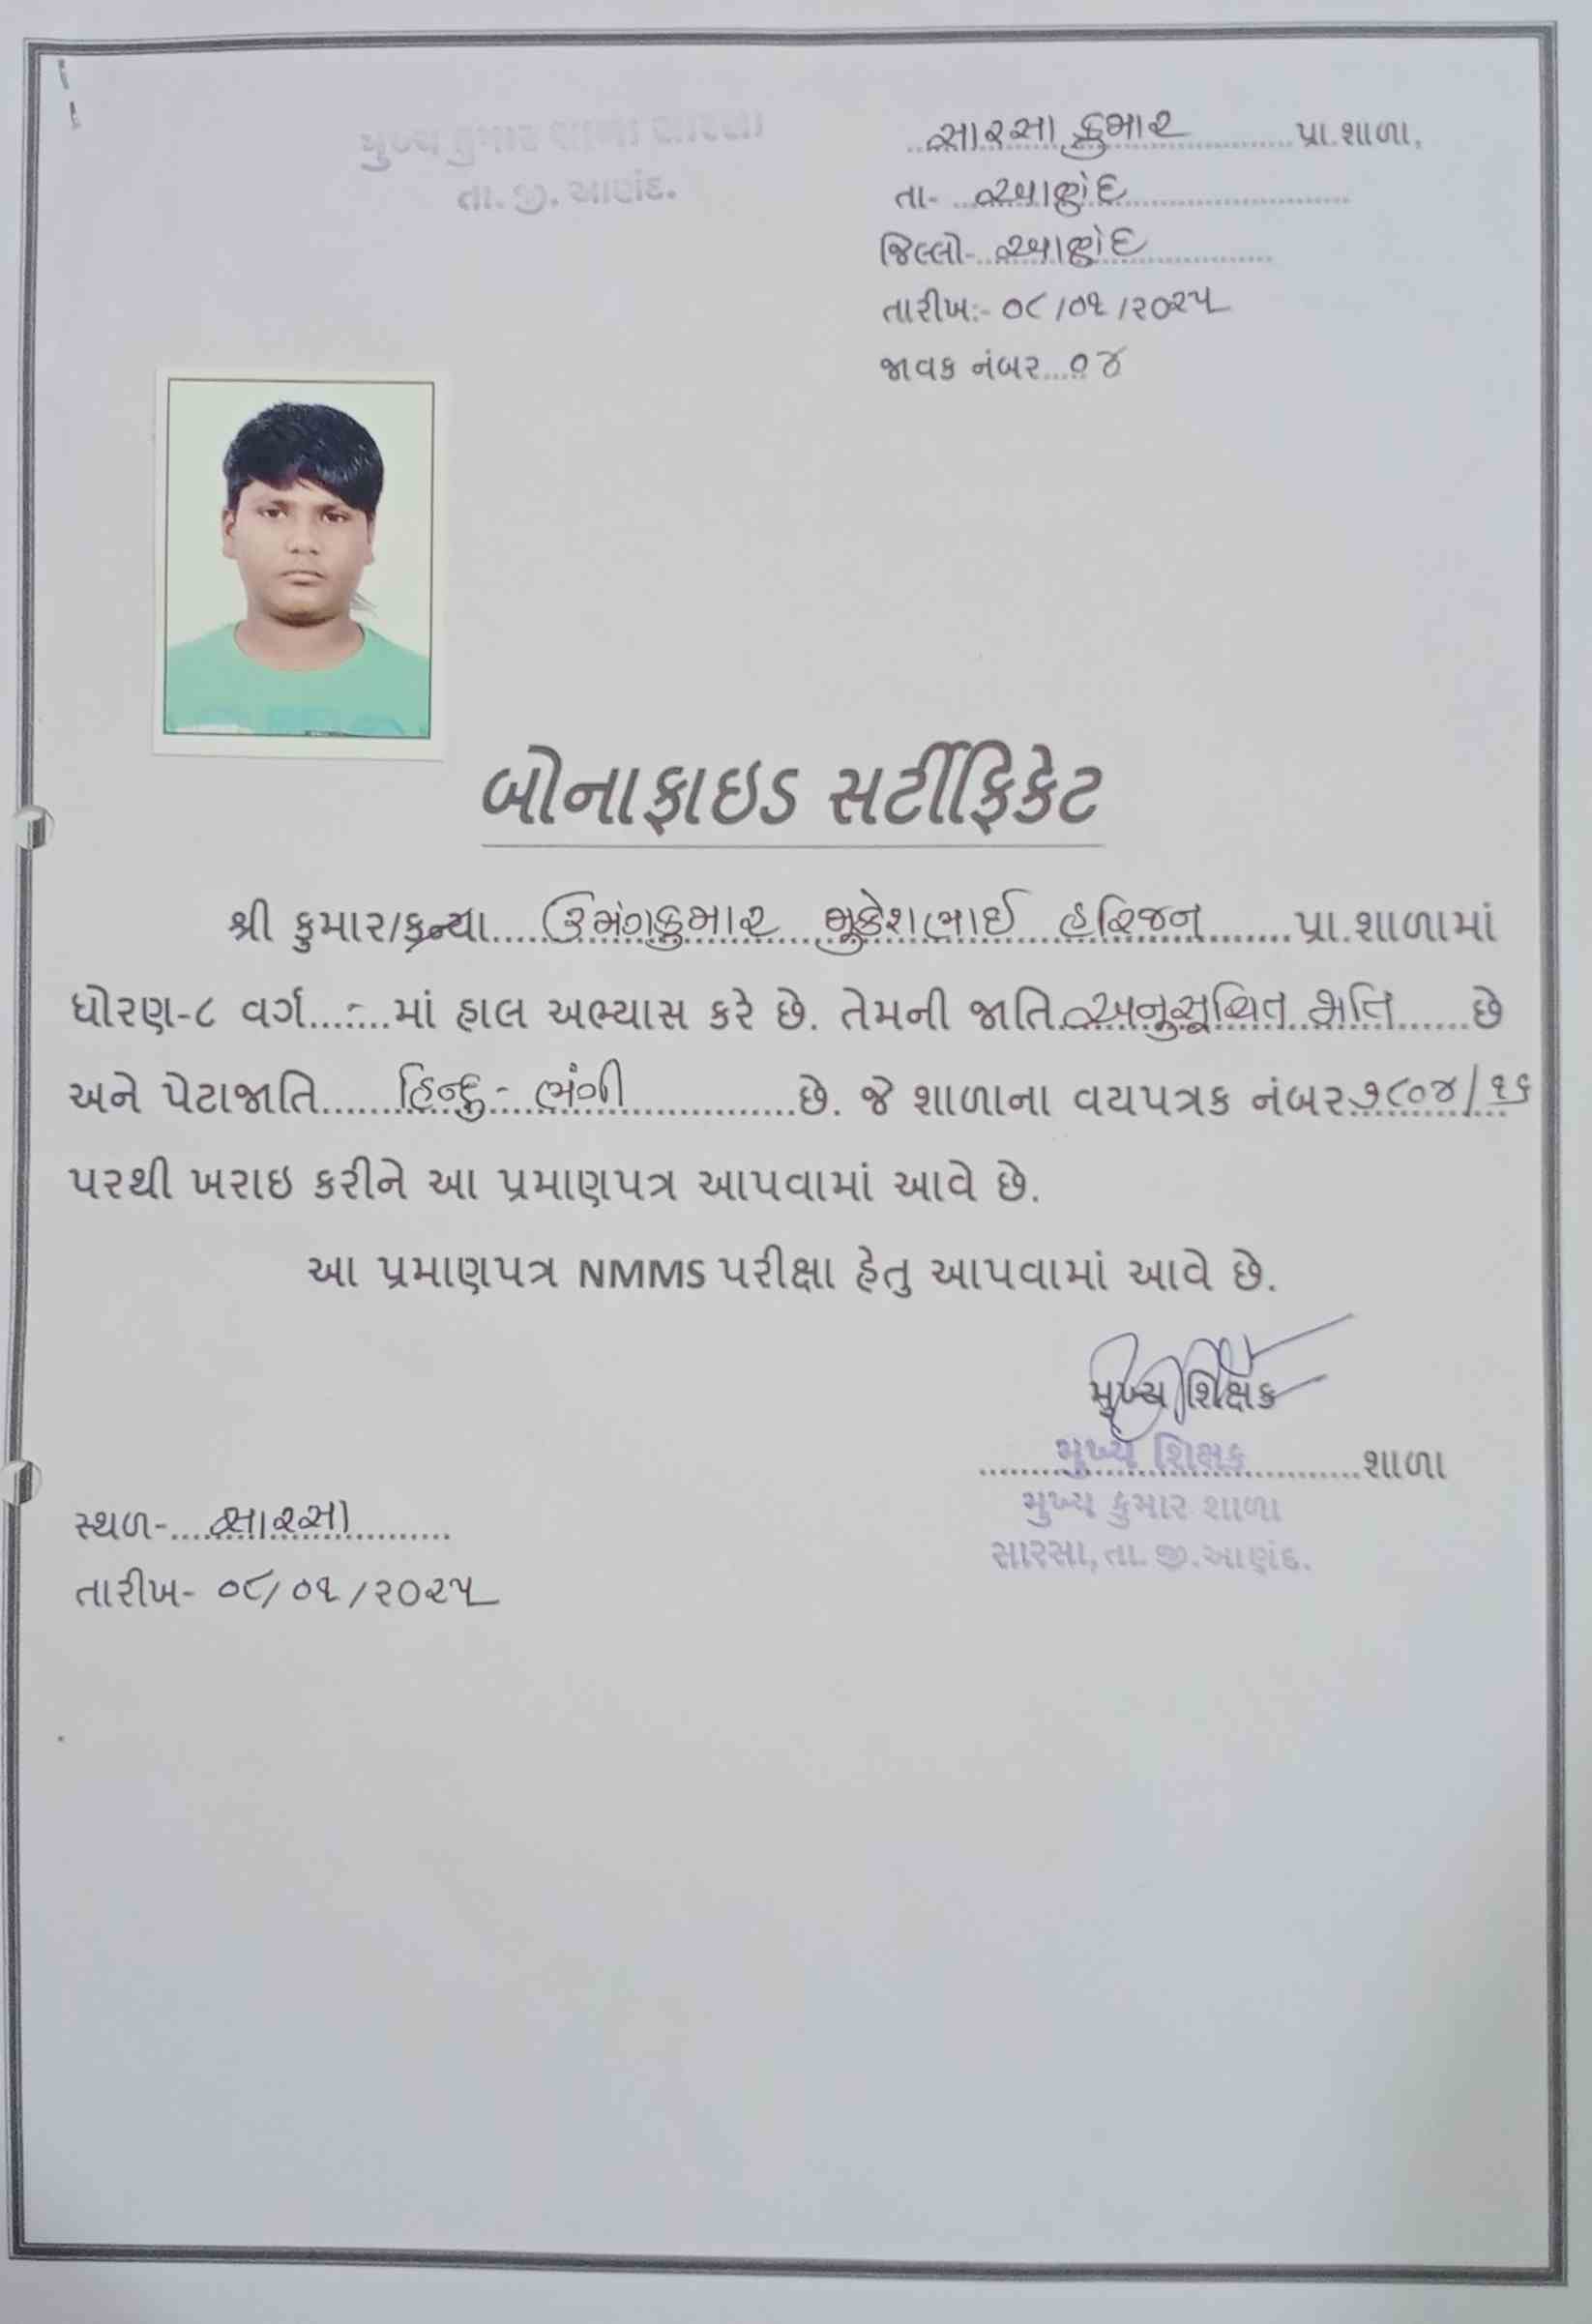 મુખ્ય કુમાર શાળા સારસા
તા. જી. આણંદ.
સારસા કુમાર પ્રા.શાળા,
તા- આણંદ
જિલ્લો- આણંદ
તારીખ:- ૦૮/૦૧/૨૦૨૫
જાવક નંબર...૦૪
બોનાફાઇડ સર્ટીફિકેટ
શ્રી કુમાર/કન્યા.... ઉમંગકુમાર મુકેશભાઈ હરિજન ....પ્રા.શાળામાં
ધોરણ-૮ વર્ગ...-...માં હાલ અભ્યાસ કરે છે. તેમની જાતિ અનુસૂચિત જાતિ ....છે
અને પેટાજાતિ.... હિન્દુ - ભંગી ....છે. જે શાળાના વયપત્રક નંબર ૭૮૦૪/૧૬
પરથી ખરાઇ કરીને આ પ્રમાણપત્ર આપવામાં આવે છે.
આ પ્રમાણપત્ર NMMS પરીક્ષા હેતુ આપવામાં આવે છે.
મુખ્ય શિક્ષક
મુખ્ય શિક્ષક ....શાળા
મુખ્ય કુમાર શાળા
સારસા, તા. જી. આણંદ.
સ્થળ-.... સારસા
તારીખ- ૦૮/૦૧/૨૦૨૫